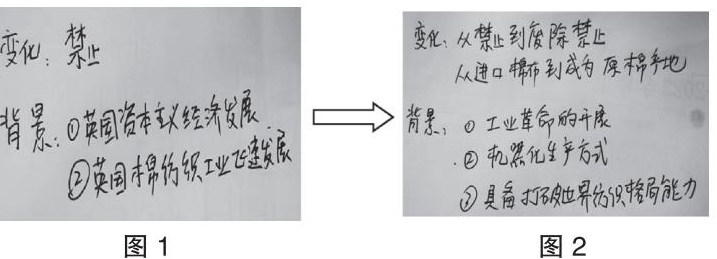 变化：禁止
背景：①英国资本主义经济发展
②英国棉纺织工业飞速发展
图 1
变化：从禁止到废除禁止
从进口棉布到成为原棉产地
背景：①工业革命的开展
②机器化生产方式
③具备打破世界纺织格局能力
图 2